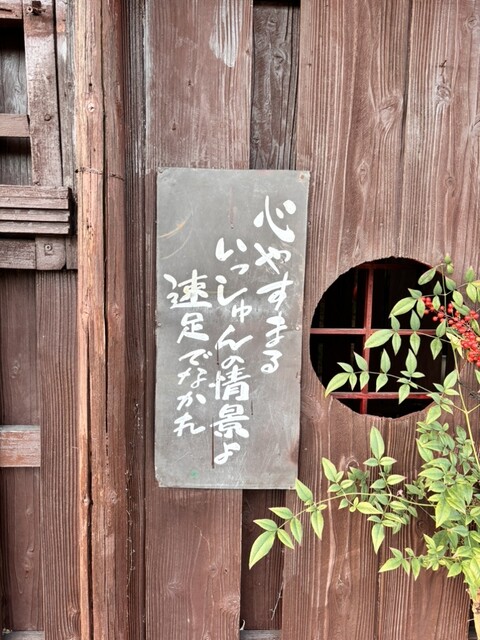 心やすまる
いっしゅんの情景よ
速足でなかれ